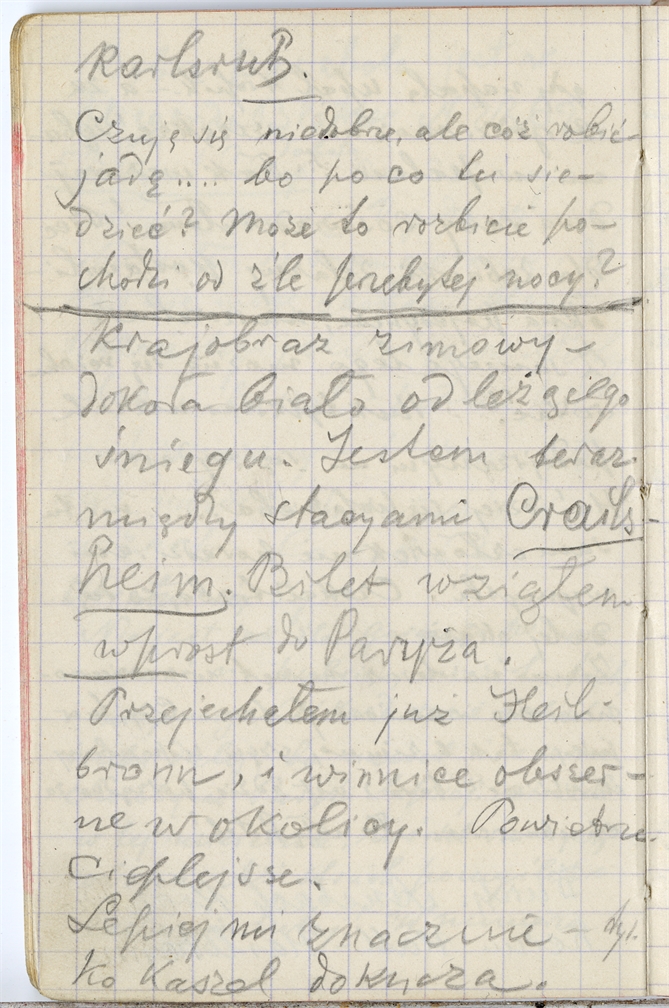 Karlsruh.
Czuję się niedobrze, ale cóż robić-
jadę.... bo po co tu sie-
dzieć? Może to rozbicie po-
chodzi od źle przebytej nocy?
Krajobraz zimowy -
dokoła biało od leżącego
śniegu. Jestem teraz
między stacyami Crails-
heim. Bilet wziąłem
wprost do Paryża.
Przejechałem już Heil-
bronn, i winnice obszer-
ne w okolicy. Powietrze
cieplejsze.
Lepiej mi znacznie - tyl-
ko kaszel dokucza.